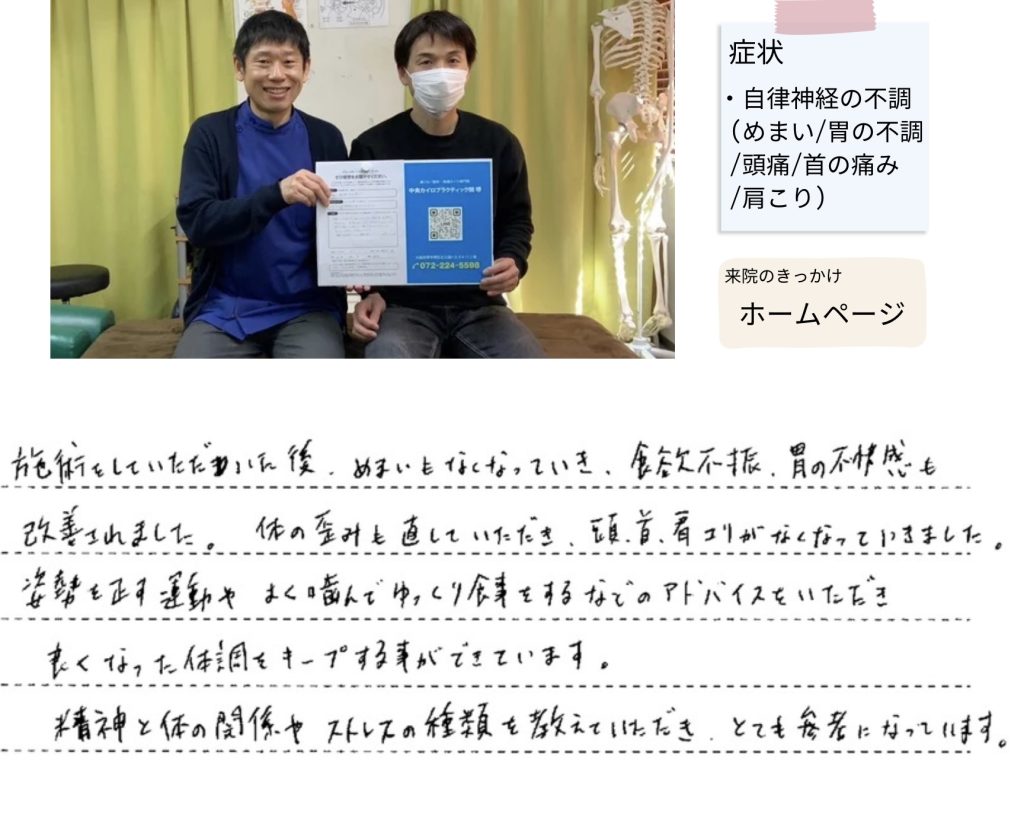 症状
・自律神経の不調
（めまい/胃の不調
/頭痛/首の痛み
/肩こり）
来院のきっかけ
ホームページ
中央カイロプラクティック院 堺
072-224-5598
施術をしていただいた後、めまいもなくなっていき、食欲不振、胃の不快感も
改善されました。体の歪みも直していただき、頭、首、肩コリがなくなっていきました。
姿勢を正す運動や よく噛んでゆっくり食事をするなどのアドバイスをいただき
良くなった体調をキープする事ができています。
精神と体の関係や ストレスの種類を教えていただき、とても参考になっています。